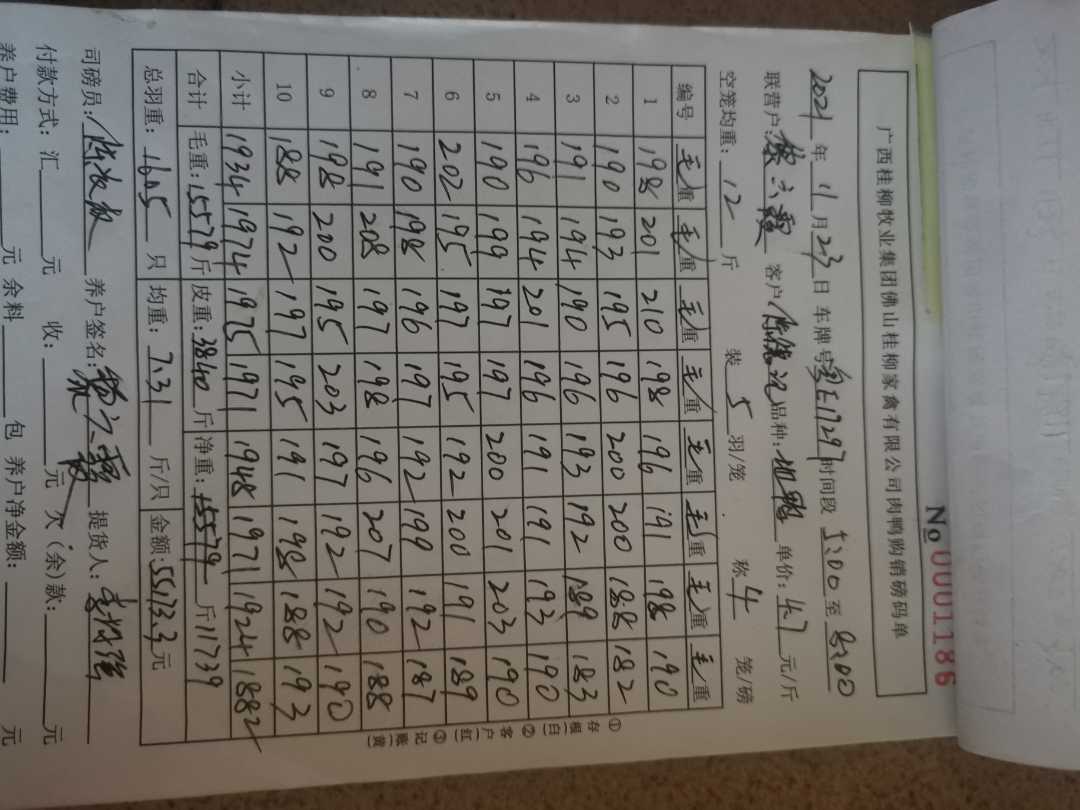 广西桂柳牧业集团佛山桂柳家禽有限公司肉鸭购销磅码单
No 0001186
2021 年 11 月 23 日 车牌号 1729 时间段 5:00 至 8:00
联营户: 客户: 品种: 单价: 4.7 元/斤
空笼均重: 12 斤 装 5 羽/笼 称 4 笼/磅
编号 毛重 毛重 毛重 毛重 毛重 毛重 毛重 毛重
1 198 201 210 198 196 191 198 190
2 190 193 195 196 200 200 188 182
3 191 194 190 196 193 192 189 183
4 196 194 201 196 191 191 193 190
5 190 199 197 197 200 201 203 190
6 202 195 197 195 192 200 191 189
7 190 198 196 197 192 199 192 187
8 191 208 197 198 196 207 190 188
9 198 200 195 203 197 192 192 190
10 188 192 197 195 191 198 188 193
小计 1934 1974 1975 1971 1948 1971 1924 1882
合计 毛重: 15579 斤 皮重: 3840 斤 净重: 15579 斤 11739
总羽重: 1605 只 均重: 7.31 斤/只 金额: 55173.3 元
①存根(白) ②客户(红) ③记账(黄)
司磅员: 养户签名: 提货人:
付款方式: 汇 元 收: 元 欠(余)款: 元
养户费用: 元 余料 包 养户净金额: 元